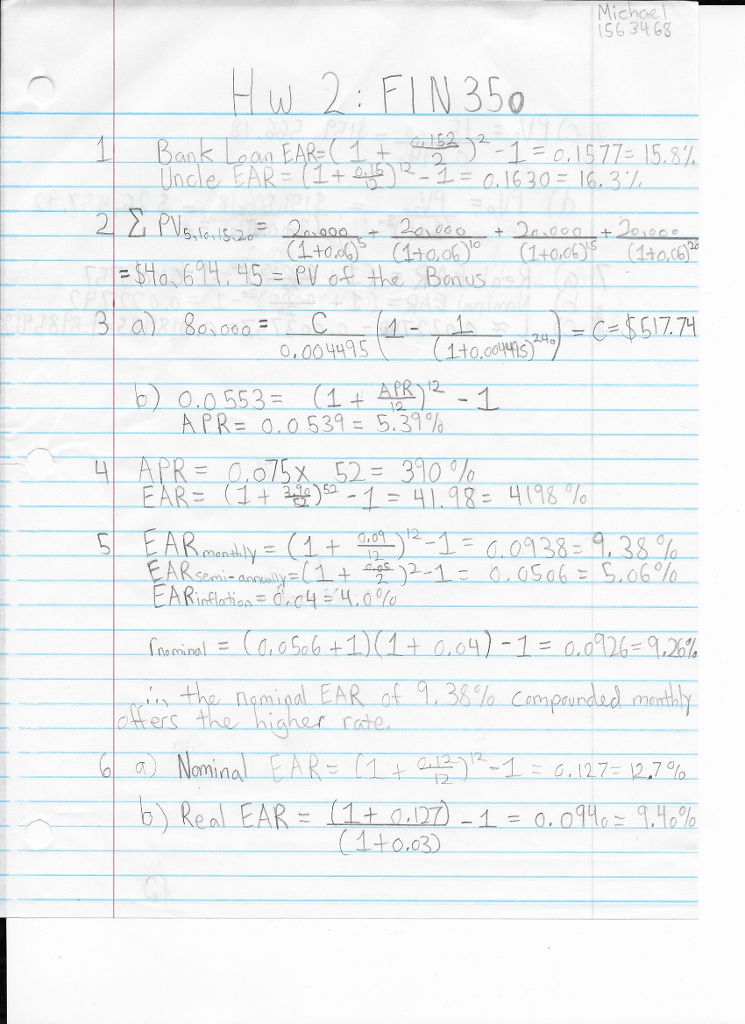 Michael
1563468
Hw 2: FIN 350
1 Bank Loan EAR = (1 + 0.152/2)^2 - 1 = 0.1577 = 15.8%
Uncle EAR = (1 + 0.15/12)^12 - 1 = 0.1630 = 16.3%
2 Σ PV5,10,15,20 = 20,000/(1+0.06)^5 + 20,000/(1+0.06)^10 + 20,000/(1+0.06)^15 + 20,000/(1+0.06)^20
= $40,694.45 = PV of the Bonus
3 a) 80,000 = C/0.004495 (1 - 1/(1+0.004495)^240) = C = $517.74
b) 0.0553 = (1 + APR/12)^12 - 1
APR = 0.0539 = 5.39%
4 APR = 0.075 x 52 = 390%
EAR = (1 + 3.90/52)^52 - 1 = 41.98 = 4198%
5 EAR monthly = (1 + 0.09/12)^12 - 1 = 0.0938 = 9.38%
EAR semi-annually = (1 + 0.05/2)^2 - 1 = 0.0506 = 5.06%
EAR inflation = 0.04 = 4.0%
r nominal = (0.0506 + 1)(1 + 0.04) - 1 = 0.0926 = 9.26%
∴ the nominal EAR of 9.38% compounded monthly
offers the higher rate.
6 a) Nominal EAR = (1 + 0.12/12)^12 - 1 = 0.127 = 12.7%
b) Real EAR = (1 + 0.127)/(1+0.03) - 1 = 0.0940 = 9.40%